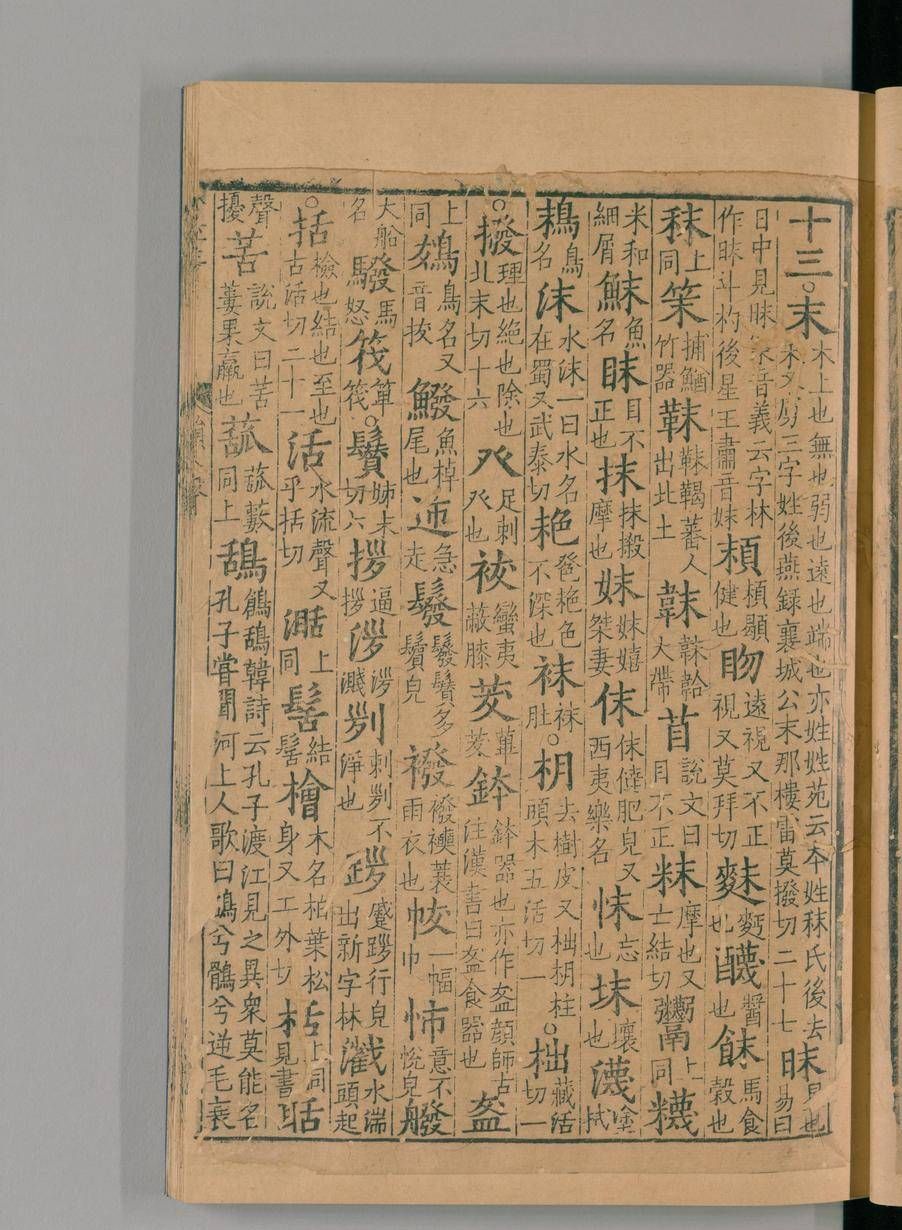 十三。末木上也無也弱也遠也端也亦姓姓苑云本姓秣氏後去又虜三字姓後燕録襄城公末那樓雷莫撥切二十七昧也易曰
日中見昧音義云字林作昧斗杓後星王肅音妹䫁顯健也遠視又不正視又莫拜切麪也醬也䬴馬食穀也
秣上同捕鰌竹器靺靺鞨蕃人出北土韎韎韐大帶苜說文曰目不正粖摩也又士結切上同
米和細屑魚名眜目不正也抹抹摋摩也妺妺嬉桀妻佅佅肥皃又西夷樂名怽忘也壤也瀎塗拭
鳥名沫水沫一曰水名在蜀又武泰切艴色不深也袜袜肚。枂去樹皮又柮枂柱頭木五活切一。柮藏活切一
。撥理也絕也除也北末切十六癶足刺癶也袚蠻夷蔽膝茇蓽茇鉢鉢器也亦作盋顏師古注漢書曰盋食器也盋
上同鳥名又音拔鱍魚掉尾也急走襏襏襫蓑雨衣也帗一幅巾意不悅皃
大船名驋馬怒筏箄筏。鬢姊末切六拶逼拶濺刺不淨也行皃出新字林水湍頭起
。括檢也結也至也古活切二十一活水流聲又乎括切上同髺結髺檜木名柏葉松身又工外切栝上同見書聒
聲擾苦說文曰苦蔞果蠃也同上鴰鶬鴰韓詩云孔子渡江見之異衆莫能名孔子嘗聞河上人歌曰鴰兮鶻兮逆毛衰